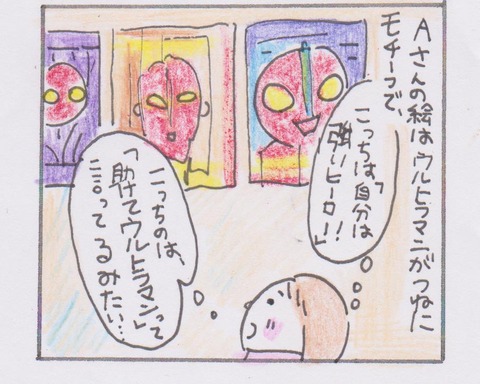 Aさんの絵はウルトラマンがつねに
モチーフで、
こっちは、「自分は
強いヒーロー!!」
こっちのは、
「助けてウルトラマン」って
言ってるみたい…